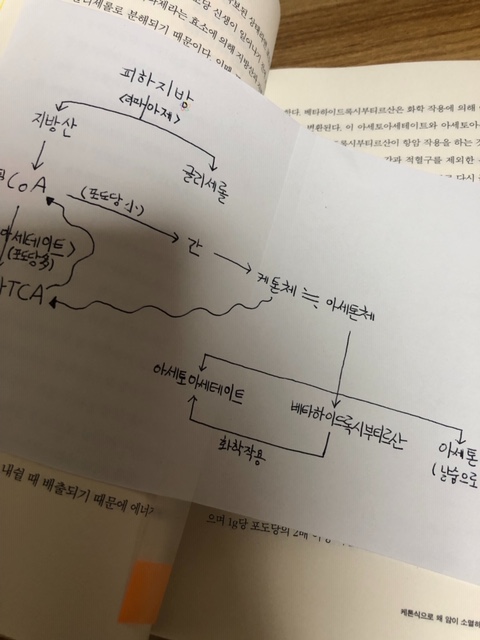 도당 신생이 일어나기
라제라는 효소에 의해 지방산
물로 분해되기 때문이다. 이때
피하지방
<리파아제>
지방산
글리세롤
CoA
(포도당 小)
간
케톤체 ≒ 아세톤체
아세테이트>
(포도당 多)
TCA
아세토아세테이트
베타하이드록시부티르산
아세톤
(날숨으로
화학작용
베타하이드록시부티르산은 화학 작용에 의해
변환된다. 이 아세토아세테이트와 아세토아
록시부티르산이 항암 작용을 하는 것
적혈구를 제외한
다시
내쉴 때 배출되기 때문에 에너
으며 1g당 포도당의 2배
케톤식으로 왜 암이 소멸하